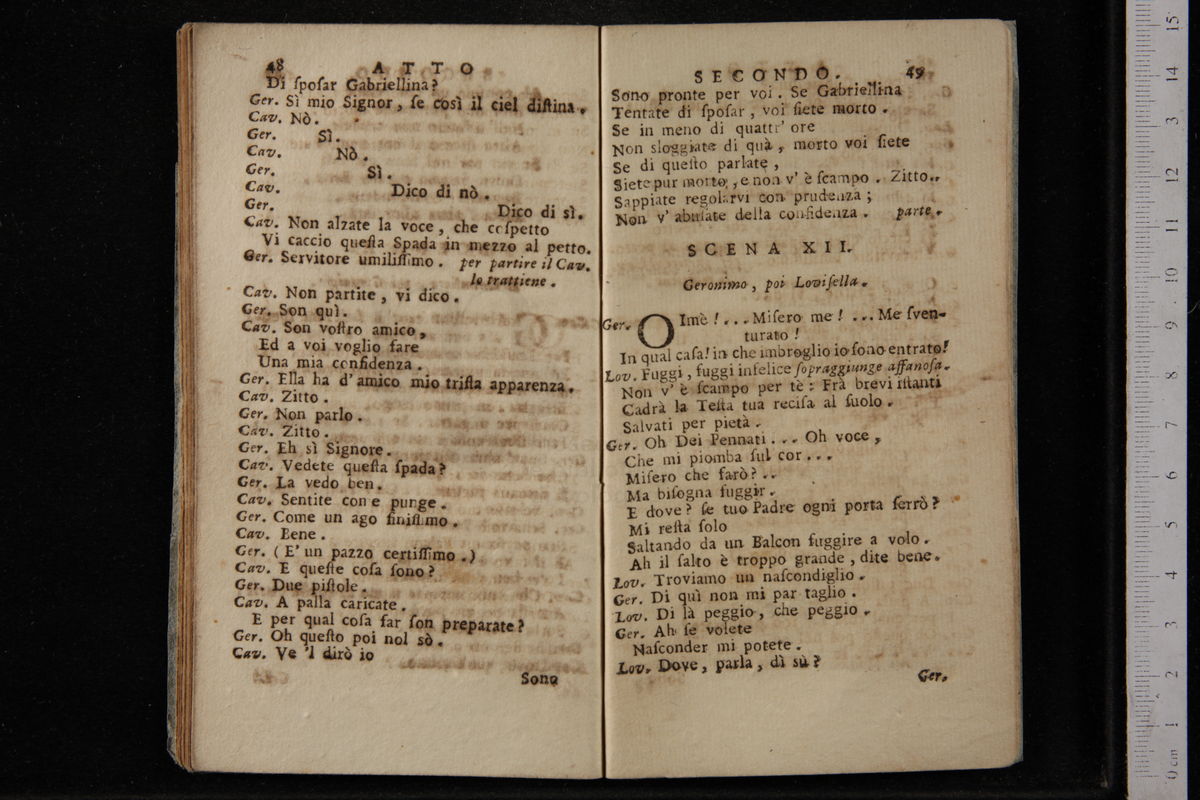 48 ATTO
Di ſpoſar Gabriellina?
Ger. Sì mio Signor, ſe così il ciel diſtina.
Cav. Nò.
Ger. Sì.
Cav. Nò.
Ger. Sì.
Cav. Dico di nò.
Ger. Dico di sì.
Cav. Non alzate la voce, che coſpetto
Vi caccio queſta Spada in mezzo al petto.
Ger. Servitore umiliſſimo. per partire il Cav.
lo trattiene.
Cav. Non partite, vi dico.
Ger. Son quì.
Cav. Son voſtro amico,
Ed a voi voglio fare
Una mia confidenza.
Ger. Ella ha d'amico mio triſta apparenza.
Cav. Zitto.
Ger. Non parlo.
Cav. Zitto.
Ger. Eh sì Signore.
Cav. Vedete queſta ſpada?
Ger. La vedo ben.
Cav. Sentite come punge.
Ger. Come un ago finiſſimo.
Cav. Bene.
Ger. (E' un pazzo certiſſimo.)
Cav. E queſte coſa ſono?
Ger. Due piſtole.
Cav. A palla caricate.
E per qual coſa far ſon preparate?
Ger. Oh queſto poi nol sò.
Cav. Ve 'l dirò io
Sono
SECONDO. 49
Sono pronte per voi. Se Gabriellina
Tentate di ſpoſar, voi ſiete morto.
Se in meno di quattr' ore
Non sloggiate di quà, morto voi ſiete
Se di queſto parlate,
Siete pur morto, e non v' è ſcampo. Zitto..
Sappiate regolarvi con prudenza;
Non v' abuſate della confidenza. parte.
SCENA XII.
Geronimo, poi Loviſella.
Ger. OImè!... Miſero me! ... Me ſven-
turato!
In qual caſa! in che imbroglio io ſono entrato!
Lov. Fuggi, fuggi infelice ſopraggiunge affanoſa.
Non v' è ſcampo per tè: Frà brevi iſtanti
Cadrà la Teſta tua reciſa al ſuolo.
Salvati per pietà.
Ger. Oh Dei Pennati... Oh voce,
Che mi piomba ſul cor...
Miſero che farò?..
Ma biſogna fuggir.
E dove? ſe tuo Padre ogni porta ſerrò?
Mi reſta ſolo
Saltando da un Balcon fuggire a volo.
Ah il ſalto è troppo grande, dite bene.
Lov. Troviamo un naſcondiglio.
Ger. Di quì non mi par taglio.
Lov. Di là peggio, che peggio.
Ger. Ah ſe volete
Naſconder mi potete.
Lov. Dove, parla, dì sù?
Ger.
0 cm 1 2 3 4 5 6 7 8 9 10 11 12 13 14 15